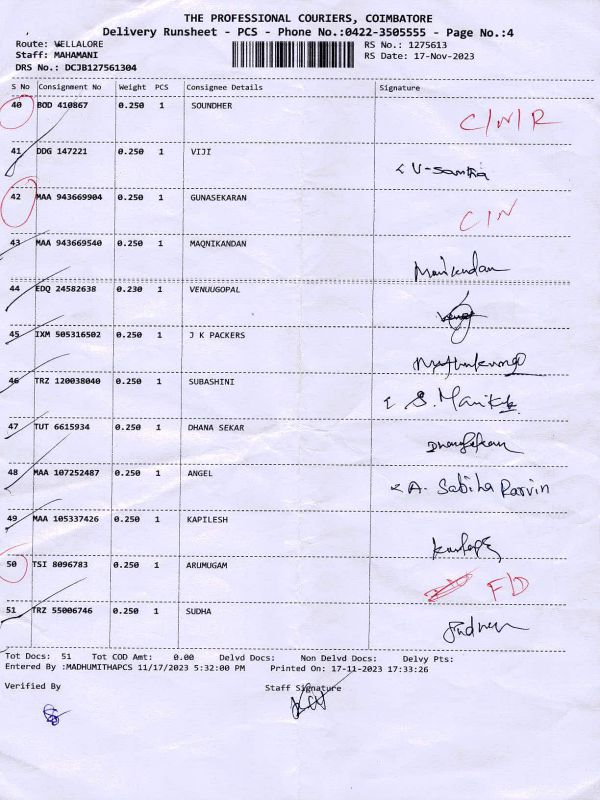 THE PROFESSIONAL COURIERS, COIMBATORE
Delivery Runsheet - PCS - Phone No.:0422-3505555 - Page No.:4
Route: VELLALORE RS No.: 1275613
Staff: MAHAMANI RS Date: 17-Nov-2023
DRS No.: DCJB127561304
S No Consignment No Weight PCS Consignee Details Signature
40 BOD 410867 0.250 1 SOUNDHER C/N/R
41 DDG 147221 0.250 1 VIJI V-Samtha
42 MAA 943669904 0.250 1 GUNASEKARAN C/N
43 MAA 943669540 0.250 1 MAQNIKANDAN Manikandan
44 EDQ 24582638 0.230 1 VENUUGOPAL
45 IXM 505316502 0.250 1 J K PACKERS
46 TRZ 120038040 0.250 1 SUBASHINI
47 TUT 6615934 0.250 1 DHANA SEKAR
48 MAA 107252487 0.250 1 ANGEL A. Sabiha Parvin
49 MAA 105337426 0.250 1 KAPILESH
50 TSI 8096783 0.250 1 ARUMUGAM F/D
51 TRZ 55006746 0.250 1 SUDHA
Tot Docs: 51 Tot COD Amt: 0.00 Delvd Docs: Non Delvd Docs: Delvy Pts:
Entered By :MADHUMITHAPCS 11/17/2023 5:32:00 PM Printed On: 17-11-2023 17:33:26
Verified By Staff Signature